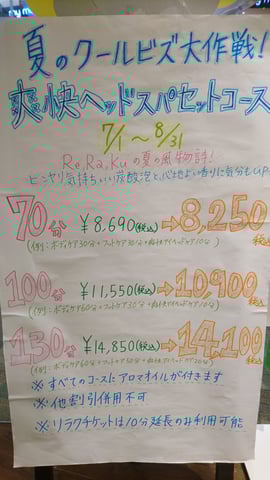 夏のクールビズ大作戦!
爽快ヘッドスパセットコース
7/1〜8/31
Re.Ra.Kuの夏の風物詩!
ヒンヤリ気持ちいい炭酸泡と、心地よい香りに気分もUP
70分 ¥8,690(税込)→8,250税込
(例:ボディケア30分+フットケア30分+爽快ドライヘッドケア10分)
100分 ¥11,550(税込)→10,900税込
(例:ボディケア60分+フットケア30分+爽快ドライヘッドケア10分)
130分 ¥14,850(税込)→14,100税込
(例:ボディケア60分+フットケア50分+爽快ドライヘッドケア20分)
※すべてのコースにアロマオイルが付きます
※他割引併用不可
※リラクチケットは10分延長のみ利用可能